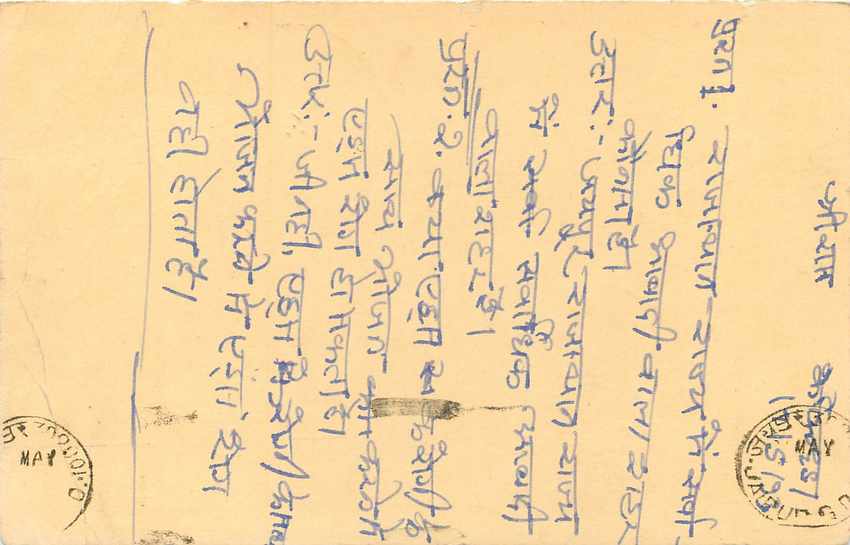 श्रीराम
प्रश्न 1. राजस्थान राज्य में सर्वा-
धिक आबादी वाला शहर
कौनसा है।
उत्तर:- जयपुर राजस्थान राज्य
में सर्वाधिक आबादी
वाला शहर है।
प्रश्न. 2. क्या एड्स के रोगी के
साथ भोजन करने से
एड्स रोग हो सकता है।
उत्तर:- जी नहीं, एड्स के रोगी के साथ
भोजन करने से एड्स रोग
नही होता है।
MAY
MAY